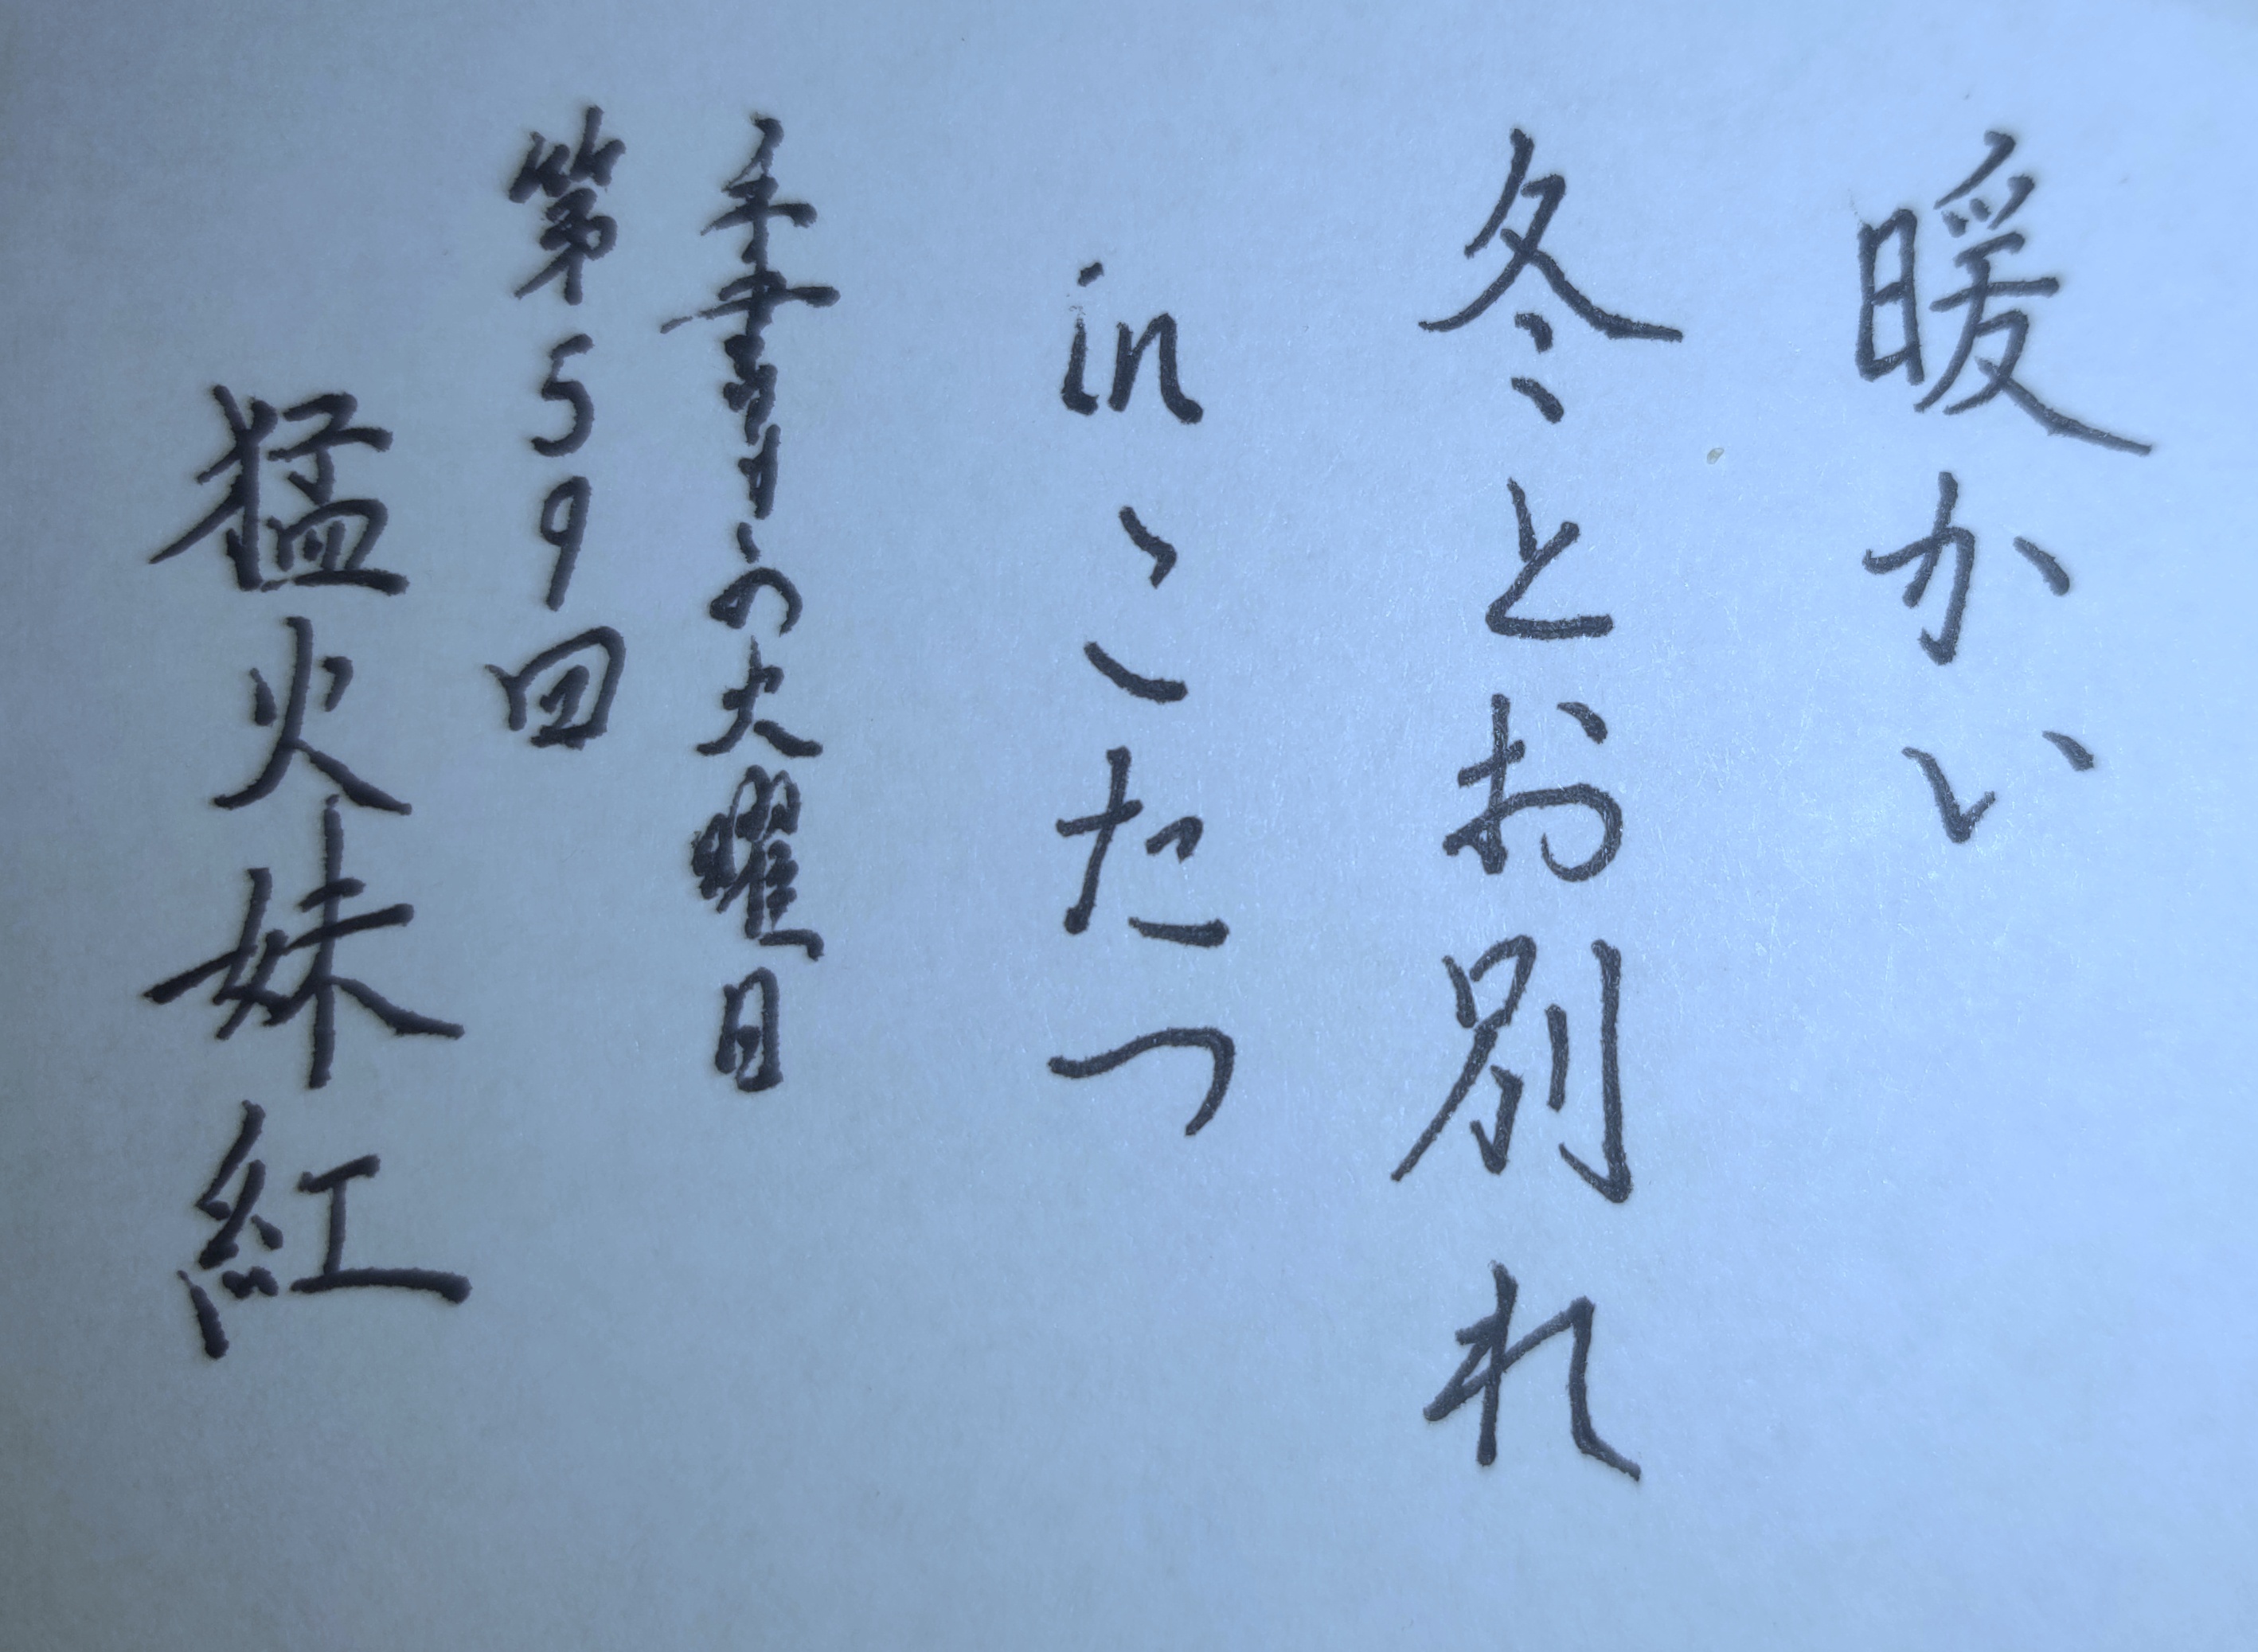 暖かい
冬とお別れ
inこたつ
手書の火曜日
第59回
猛火妹紅